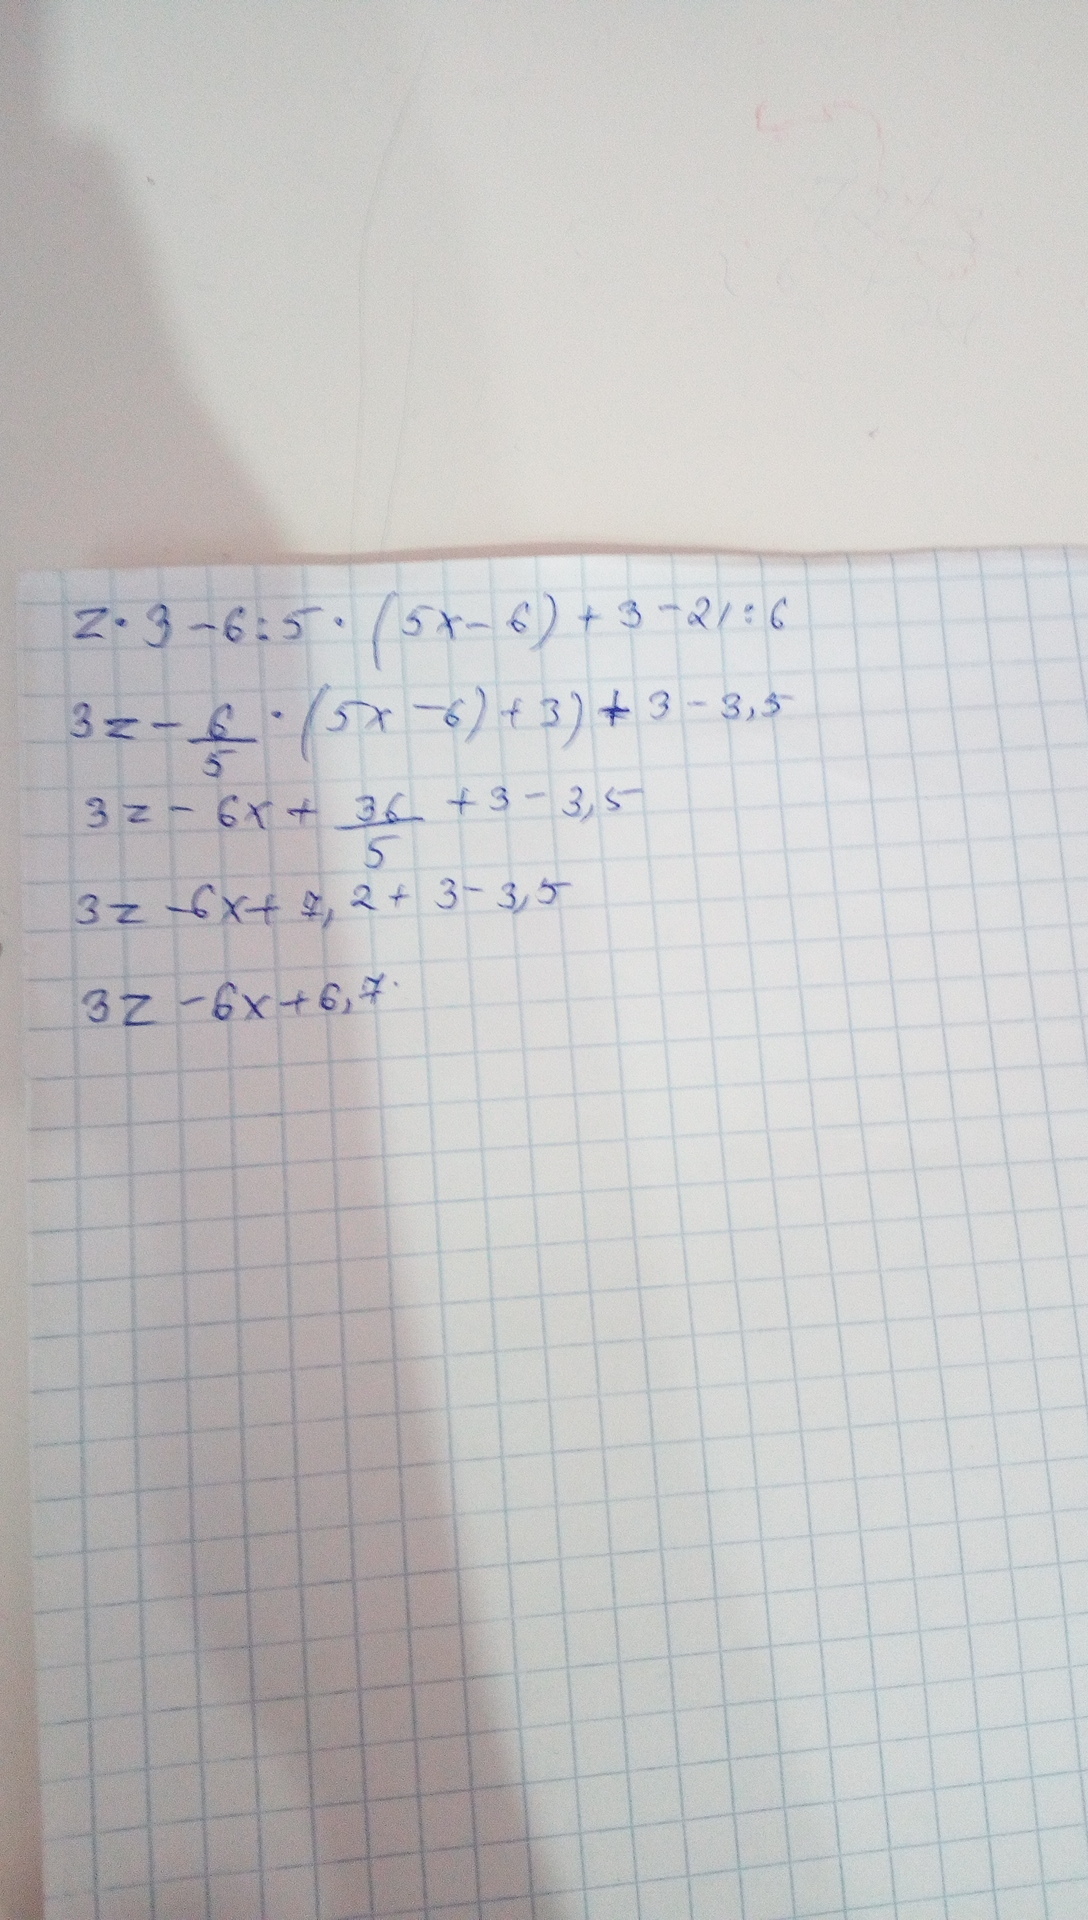 z · 3 - 6 : 5 · (5x - 6) + 3 - 21 : 6
3z - 6/5 · (5x - 6) + 3) + 3 - 3,5
3z - 6x + 36/5 + 3 - 3,5
3z - 6x + 7,2 + 3 - 3,5
3z - 6x + 6,7